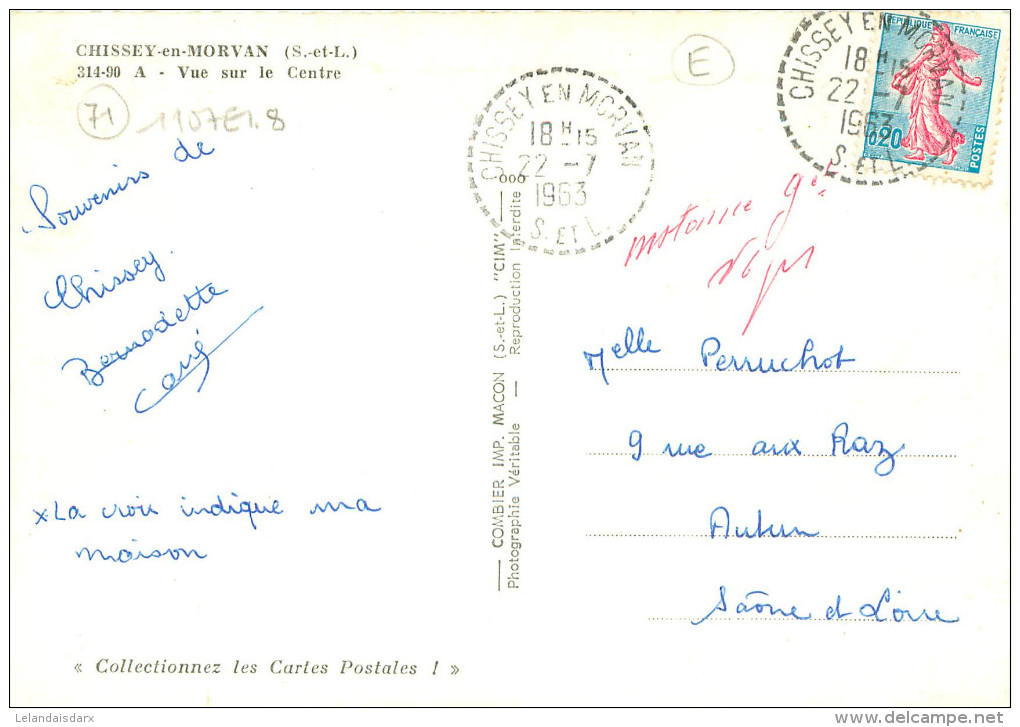 CHISSEY-en-MORVAN (S.-et-L.)
314-90 A - Vue sur le Centre
71
1107E1.8
E
Souvenirs de
Chissey.
Bernadette
x La croix indique ma
maison
« Collectionnez les Cartes Postales ! »
CHISSEY EN MORVAN
18H15
22 -7
1963
S. ET L.
COMBIER IMP. MACON (S.-et-L.) "CIM"
Photographie Véritable — Reproduction Interdite
ooo
CHISSEY EN MORVAN
18H15
22 -7
1963
S. ET L.
REPUBLIQUE FRANÇAISE
0,20
POSTES
Melle Perruchot
9 rue aux Raz
Autun
Saône et Loire
Lelandaisdarx
www.delcampe.net